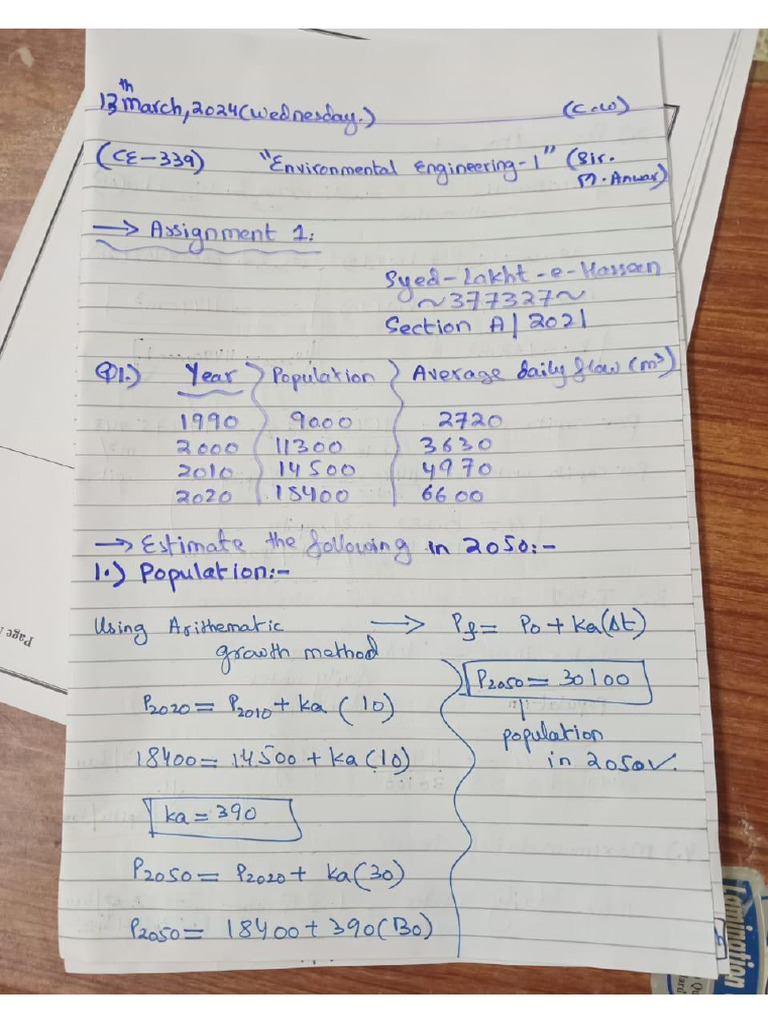 13th march, 2024 (Wednesday.) (C.W)
(CE-339) "Environmental Engineering-1" (Sir. M. Anwar)
→ Assignment 1:
Syed-Lakht-e-Hassan
~377327~
Section A | 2021
Q1.) Year Population Average daily flow (m³)
1990 9000 2720
2000 11300 3630
2010 14500 4970
2020 18400 6600
→ Estimate the following in 2050:-
1.) Population:-
Using Arithematic growth method → Pf = Po + ka(Δt)
P2020 = P2010 + ka (10)
18400 = 14500 + ka (10)
ka = 390
P2050 = P2020 + ka (30)
P2050 = 18400 + 390 (30)
P2050 = 30100
population
in 2050 ✓.
Page
Lamination